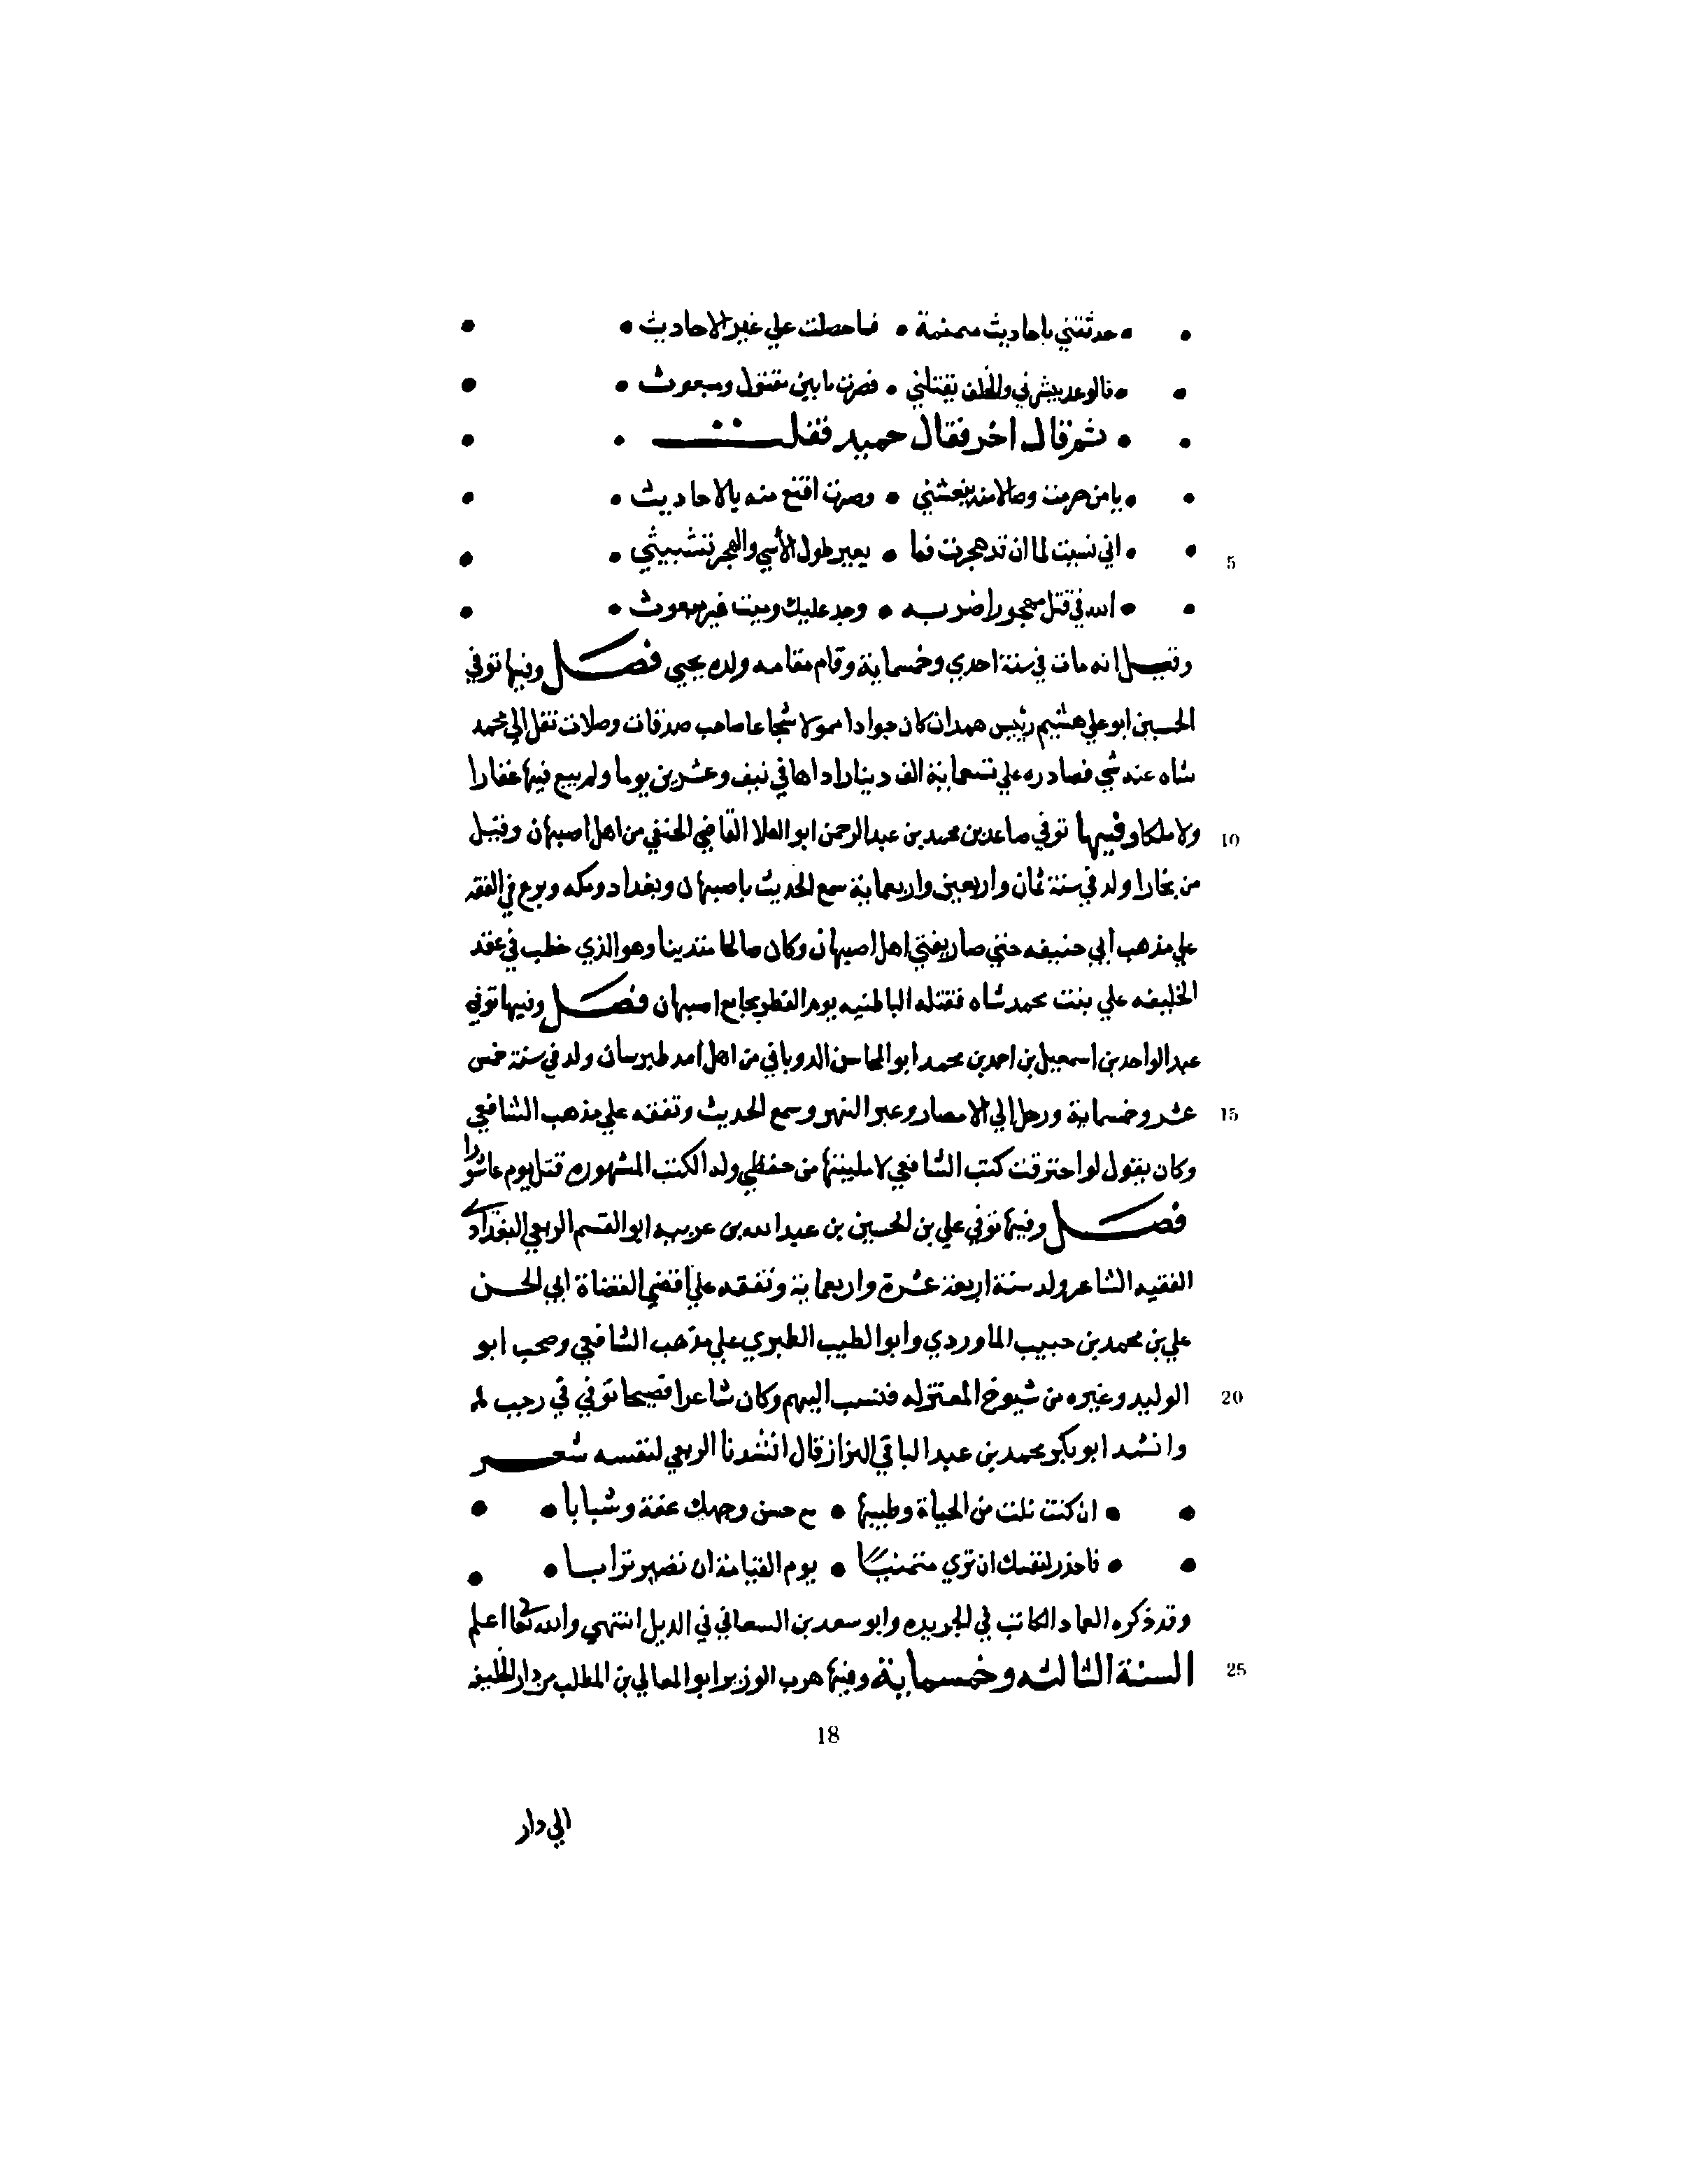 • • حدثتني باحاديث ممنمة • فما حصلت علي غير الاحاديث • •
• • فالوعد ينشرني والخلف يقتلني • فصرت ما بين مقتول ومبعوث • •
• • ثم قال اخر فقال حميد فقلت • •
• • يا من حرمت وصالا منه ينعشني • وصرت اقنع منه بالاحاديث • •
• • اني نسيت لما ان قد هجرت فما • يعبر طول الأسي والهجر تشبيثي • •
5
• • الله في قتل مهجور اضر به • وجد عليك وميت غير مبعوث • •
وقيل انه مات في سنة احدي وخمسماية وقام مقامه ولده يحيي فصل وفيها توفي
الحسين ابو علي هشيم رئيس همدان كان جوادا ممولا شجاعا صاحب صدقات وصلات نقل الي محمد
شاه عنه شي فصادره علي تسعماية الف دينار اداها في نيف وعشرين يوما ولم يبع فيها عقارا
ولا ملكا وفيها توفي صاعد بن محمد بن عبد الرحمن ابو العلا القاضي الحنفي من اهل اصبهان وقيل
10
من بخارا ولد في سنة ثمان واربعين واربعماية سمع الحديث باصبهان وبغداد ومكه وبرع في الفقه
علي مذهب أبي حنيفه حتي صار يفتي اهل اصبهان وكان صالحا متدينا وهو الذي خطب في عقد
الخليفه علي بنت محمد شاه فقتله الباطنيه يوم الفطر بجامع اصبهان فصل وفيها توفي
عبد الواحد بن اسمعيل بن احمد بن محمد ابو المحاسن الروياني من اهل امد طبرسان ولد في سنة خمس
عشر وخمسماية ورحل الي الامصار وعبر النهر وسمع الحديث وتفقه علي مذهب الشافعي
15
وكان يقول لو احترقت كتب الشافعي لامليتها من حفظي وله الكتب المشهوره قتل يوم عاشورا
فصل وفيها توفي علي بن الحسين بن عبد الله بن عريبه ابو القسم الربعي البغدادي
الفقيه الشاعر ولد سنة اربعة عشرة واربعماية وتفقه علي اقضي القضاة ابي الحسن
علي بن محمد بن حبيب الماوردي وأبو الطيب الطبري علي مذهب الشافعي وصحب ابو
الوليد وغيره من شيوخ المعتزله فنسب اليهم وكان شاعرا فصيحا توفي في رجب له
20
وانشد ابو بكر محمد بن عبد الباقي البزاز قال انشدنا الربعي لنفسه شعر
• • ان كنت نلت من الحياة وطيبها • مع حسن وجهك عفة وشبابا • •
• • فاحذر لنفسك ان تري متمنيا • يوم القيامة ان تصير ترابا • •
وقد ذكره العماد الكاتب في الخريده وابو سعد بن السمعاني في الديل انتهي والله تعا اعلم
السنة الثالثه وخمسماية وفيها هرب الوزير ابو المعالي بن المطلب من دار الخليفه
25
18
الي دار